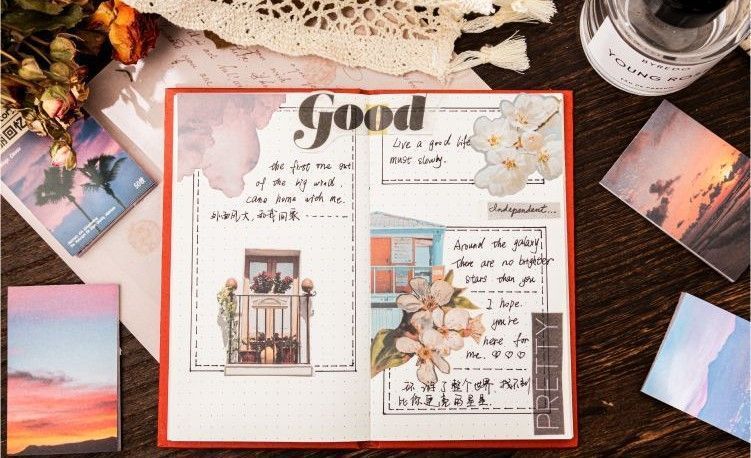 Good
the first me out
of the big wind.
came home with me.
外面风大,和我回家
Live a good life
must slowly.
Independent...
Around the galaxy,
there are no brighter
stars than you
I hope.
you're
here for
me. ♡♡♡
环游了整个世界 找不到
比你更亮的星星
PRETTY
BYREDO
YOUNG RO
EAU DE PARFUM
回忆